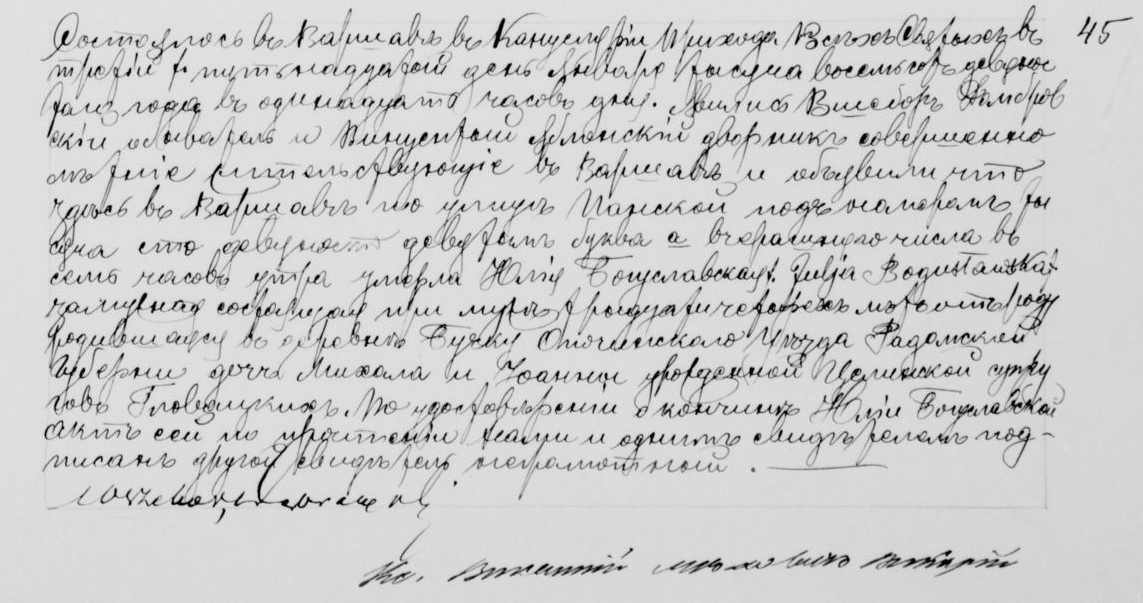 45
Состоялось въ Варшавѣ въ Канцеляріи Прихода Всѣхъ Святыхъ въ
третій пятьнадцатый день Января тысяча восемьсотъ девяно
года въ одинадцать часовъ дня. Явились
обыватель и Винцентый Яблонскій дворникъ совершенно
лѣтніе жительствующіе въ Варшавѣ и объявили что
здѣсь въ Варшавѣ по улицѣ Панской подъ номеромъ ты
сяча сто девяносто девятымъ буква а вчерашняго числа въ
семь часовъ утра умерла Юлія Богуславская / Julja Bogusławska /
замужная состоящая при мужѣ тридцати лѣтъ отъ роду
родившаяся въ деревнѣ Опочинского Уѣзда Радомской
Губерніи дочь Михала и Іоанны урожденной супру
говъ Гловацкихъ. По удостовѣреніи о кончинѣ Юліи Богуславской
актъ сей по прочтеніи нами и однимъ свидѣтелемъ под-
писанъ другой свидѣтель неграмотный.
Кс. Викентій